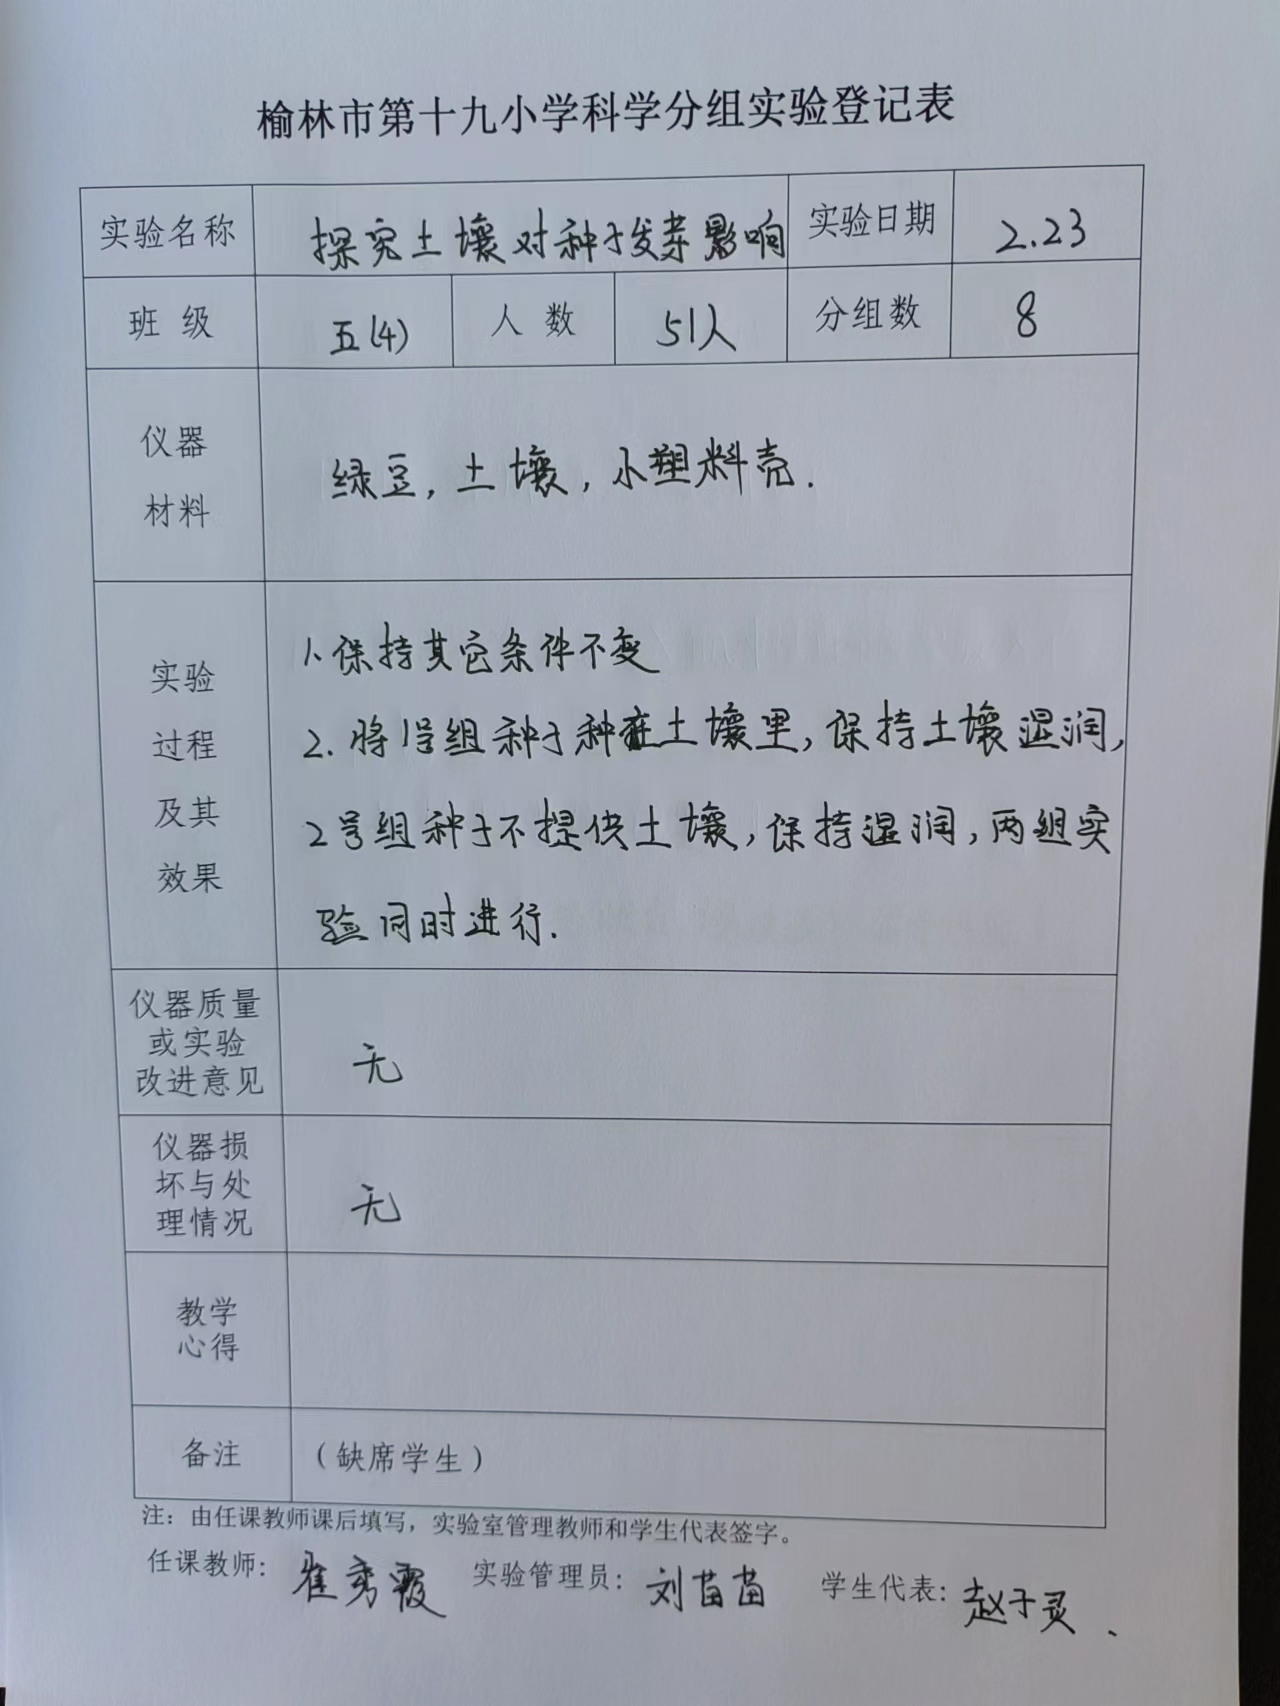 榆林市第十九小学科学分组实验登记表
实验名称 探究土壤对种子发芽影响 实验日期 2.23
班 级 五(4) 人 数 51人 分组数 8
仪器
材料
绿豆，土壤，小塑料壳.
实验
过程
及其
效果
1.保持其它条件不变
2.将1号组种子种在土壤里,保持土壤湿润,
2号组种子不提供土壤,保持湿润,两组实
验同时进行.
仪器质量
或实验
改进意见
无
仪器损
坏与处
理情况
无
教学
心得
备注 （缺席学生）
注：由任课教师课后填写，实验室管理教师和学生代表签字。
任课教师: 崔秀霞 实验管理员: 刘苗苗 学生代表: 赵于灵